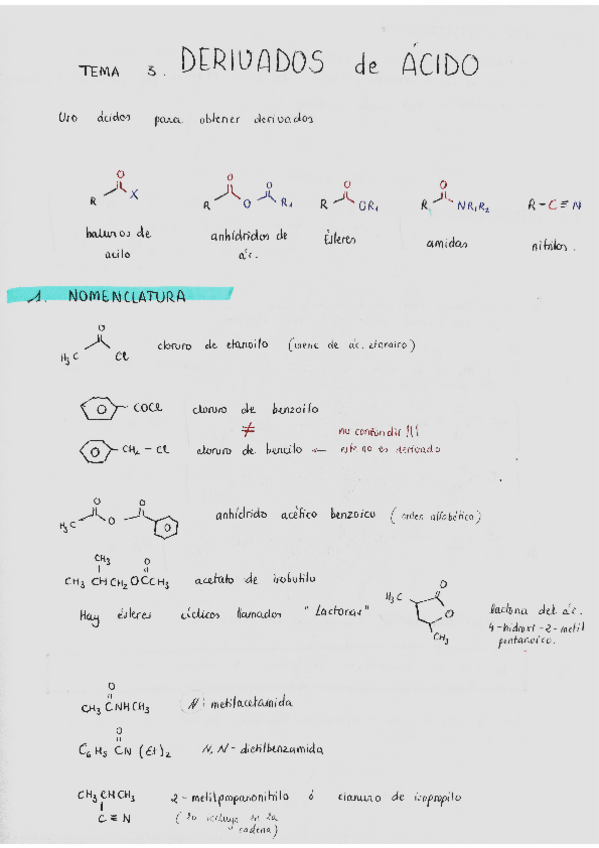 TEMA 3. DERIVADOS de ÁCIDO
Uso ácidos para obtener derivados
O O O O O
R X R O R1 R OR1 R NR1R2 R-C≡N
haluros de acilo
anhídridos de ác.
Ésteres
amidas
nitrilos.
1. NOMENCLATURA
O
H3C Cl cloruro de etanoilo (viene de ác. etanoico)
COCl cloruro de benzoilo
≠ no confundir!!!
CH2-Cl cloruro de bencilo ← este no es derivado
O O
H3C O anhídrido acético benzoico (orden alfabético)
CH3 O
CH3CHCH2OCCH3 acetato de isobutilo
Hay ésteres cíclicos llamados "Lactonas"
H3C O O CH3
Lactona del ác.
4-hidroxi-2-metil
pentanoico.
O
CH3CNHCH3 N-metilacetamida
O
C6H5CN(Et)2 N,N-dietilbenzamida
CH3CHCH3 2-metilpropanonitrilo ó cianuro de isopropilo
C≡N (lo incluyo en la
cadena)